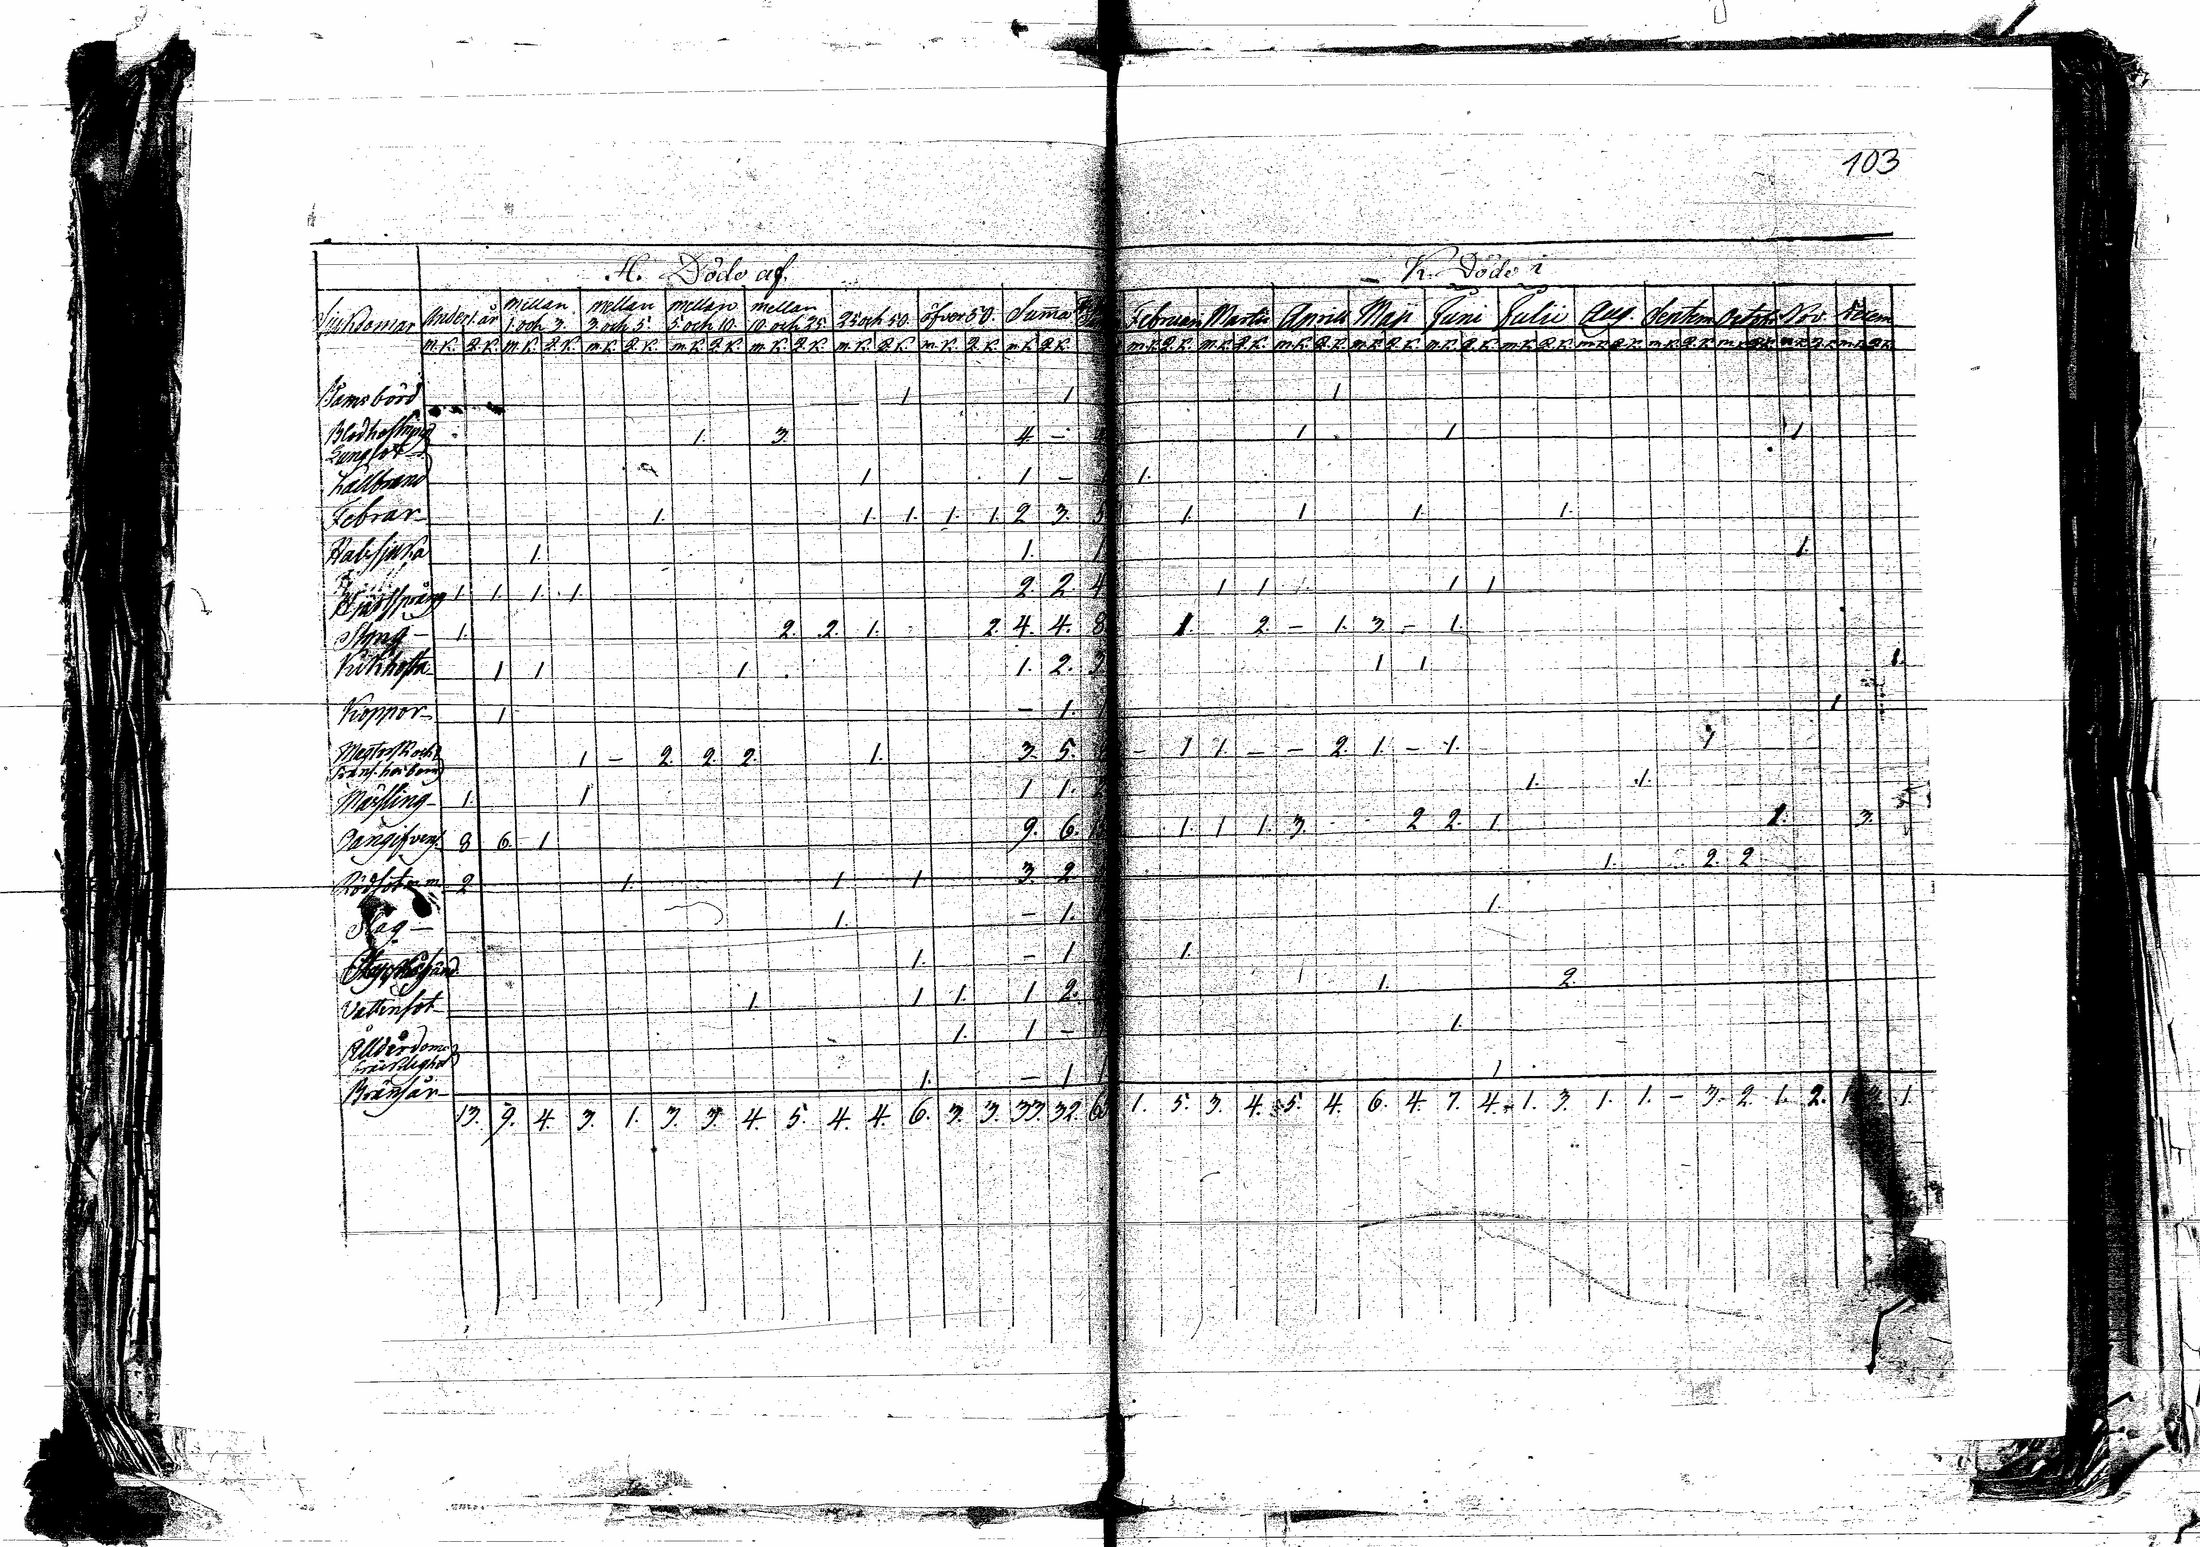 103
H. Döde af
K. Döde i
Sjukdomar under 1 år mellan 1 och 3. mellan 3 och 5. mellan 5 och 10. mellan 10 och 25. 25 och 50. öfver 50. Suma Februari Martii Aprill Maji Juni Julii Aug. Septem Octobr Nov. Decem
m.K. Q.K. m.K. Q.K. m.K. Q.K. m.K. Q.K. m.K. Q.K. m.K. Q.K. m.K. Q.K. m.K. Q.K. m.K. Q.K. m.K. Q.K. m.K. Q.K. m.K. Q.K. m.K. Q.K. m.K. Q.K. m.K. Q.K. m.K. Q.K. m.K. Q.K. m.K. Q.K. m.K. Q.K.
Barnsbörd 1 1 1
Blodhostning 1. 3. 4 – 1 1 1
Lungsot
Kallbrand 1 1 – 1.
Febrar 1. 1. 1. 1. 1. 2 3. 5 1. 1 1. 1.
Halssjuka 1. 1. 1 1.
Hjertsprång 1 1 1 1 2. 2. 4 1 1 1 1
Styng 1. 2. 2. 1. 2. 4. 4. 8 1. 2. – 1. 3. – 1.
Kikhosta 1 1 1 1. 2. 3 1 1 1.
Koppor 1 – 1. 1 1
Magtref. och 1 – 2. 2. 2. 1. 3. 5. – 1 1 – – 2. 1 – 1. 1
Mässling 1. 1 1 1. 2 1. 1.
Oangifven 8 6. 1 9. 6. 1. 1 1. 3. 2 2. 1. 1. 3.
Rödsot 2 1. 1 1 3. 2 1. 2. 2
Slag 1. – 1. 1.
1. – 1 1
Vattensot 1. 1 1. 1 2. 1. 2.
Ålderdoms 1. 1 – 1.
bräcklighet
Bränsår 1. – 1 1 1
13. 9. 4. 3. 1. 3. 3. 4. 5. 4. 4. 6. 3. 3. 33. 32. 1. 5. 3. 4. 5. 4. 6. 4. 7. 4. 1. 3. 1. 1. – 3. 2. 1. 2. 1 1.